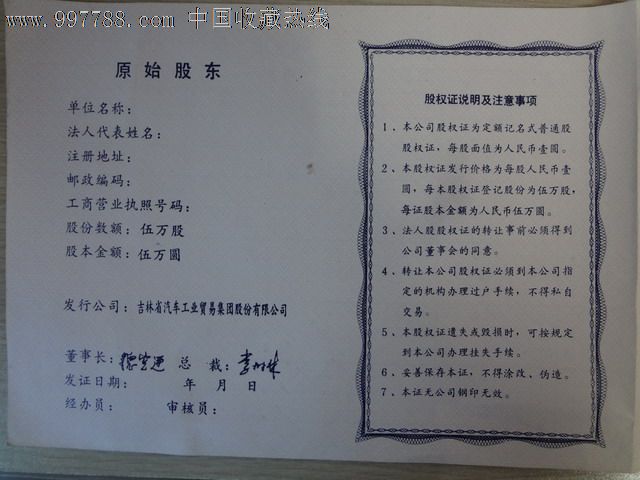 www.997788.com 中国收藏热线
原始股东
单位名称：
法人代表姓名：
注册地址：
邮政编码：
工商营业执照号码：
股份数额：伍万股
股本金额：伍万圆
发行公司：吉林省汽车工业贸易集团股份有限公司
董事长： 总裁：
发证日期： 年 月 日
经办员： 审核员：
股权证说明及注意事项
1、本公司股权证为定额记名式普通股
股权证，每股面值为人民币壹圆。
2、本股权证发行价格为每股人民币壹
圆，每本股权证登记股份为伍万股，
每证股本金额为人民币伍万圆。
3、法人股股权证的转让事前必须得到
公司董事会的同意。
4、转让本公司股权证必须到本公司指
定的机构办理过户手续，不得私自
交易。
5、本股权证遗失或毁损时，可按规定
到本公司办理挂失手续。
6、妥善保存本证，不得涂改、伪造。
7、本证无公司钢印无效。